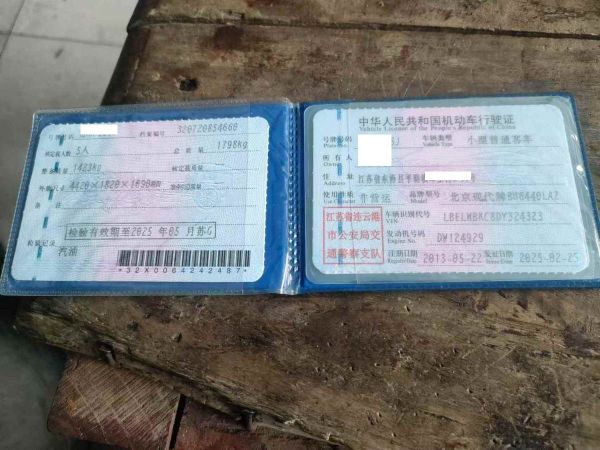 号牌号码
档案编号 320720854666
核定载人数 5人 总质量 1798kg
整备质量 1423kg 核定载质量
外廓尺寸 4420×1820×1690mm 准牵引总质量
备注
检验有效期至2025年05月苏G
检验记录
汽油
*32X0064242487*
中华人民共和国机动车行驶证
Vehicle License of the People's Republic of China
号牌号码 5J 车辆类型 小型普通客车
Vehicle Type
所有人
Owner
住址 江苏省东海县
Address
使用性质 非营运 品牌型号 北京现代牌
Use Character Model
江苏省连云港 车辆识别代号
VIN
市公安局交 发动机号码 DW124929
Engine No.
通警察支队 注册日期 2013-05-22 发证日期 2025-02-25
Register Date Issue Date